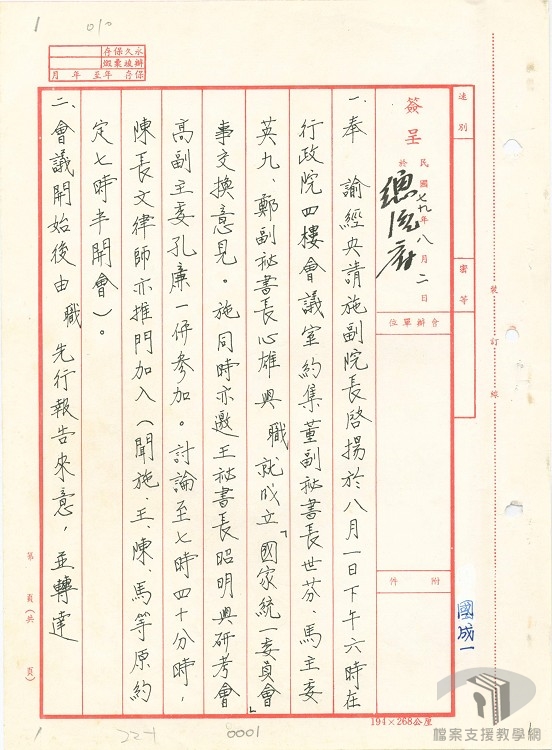 1
010
永久保存
辦後彙繳
保存 年至 年 月
速別
密等
簽呈
民國七九年八月二日
於 總統府
會辦單位
附件
一、奉 諭經央請施副院長啓揚於八月一日下午六時在
行政院四樓會議室約集董副祕書長世芬、馬主委
英九、鄭副祕書長心雄與 職 就成立「國家統一委員會」
事交換意見。施同時亦邀王祕書長昭明與研考會
高副主委孔廉一併參加。討論至七時四十分時，
陳長文律師亦推門加入（聞施、王、陳、馬等原約
定七時半開會）。
二、會議開始後由 職 先行報告來意，並轉達
號
訂
線
第 頁(共 頁)
國成一
194×268公厘
1
22-1
0001
1
檔案支援教學網